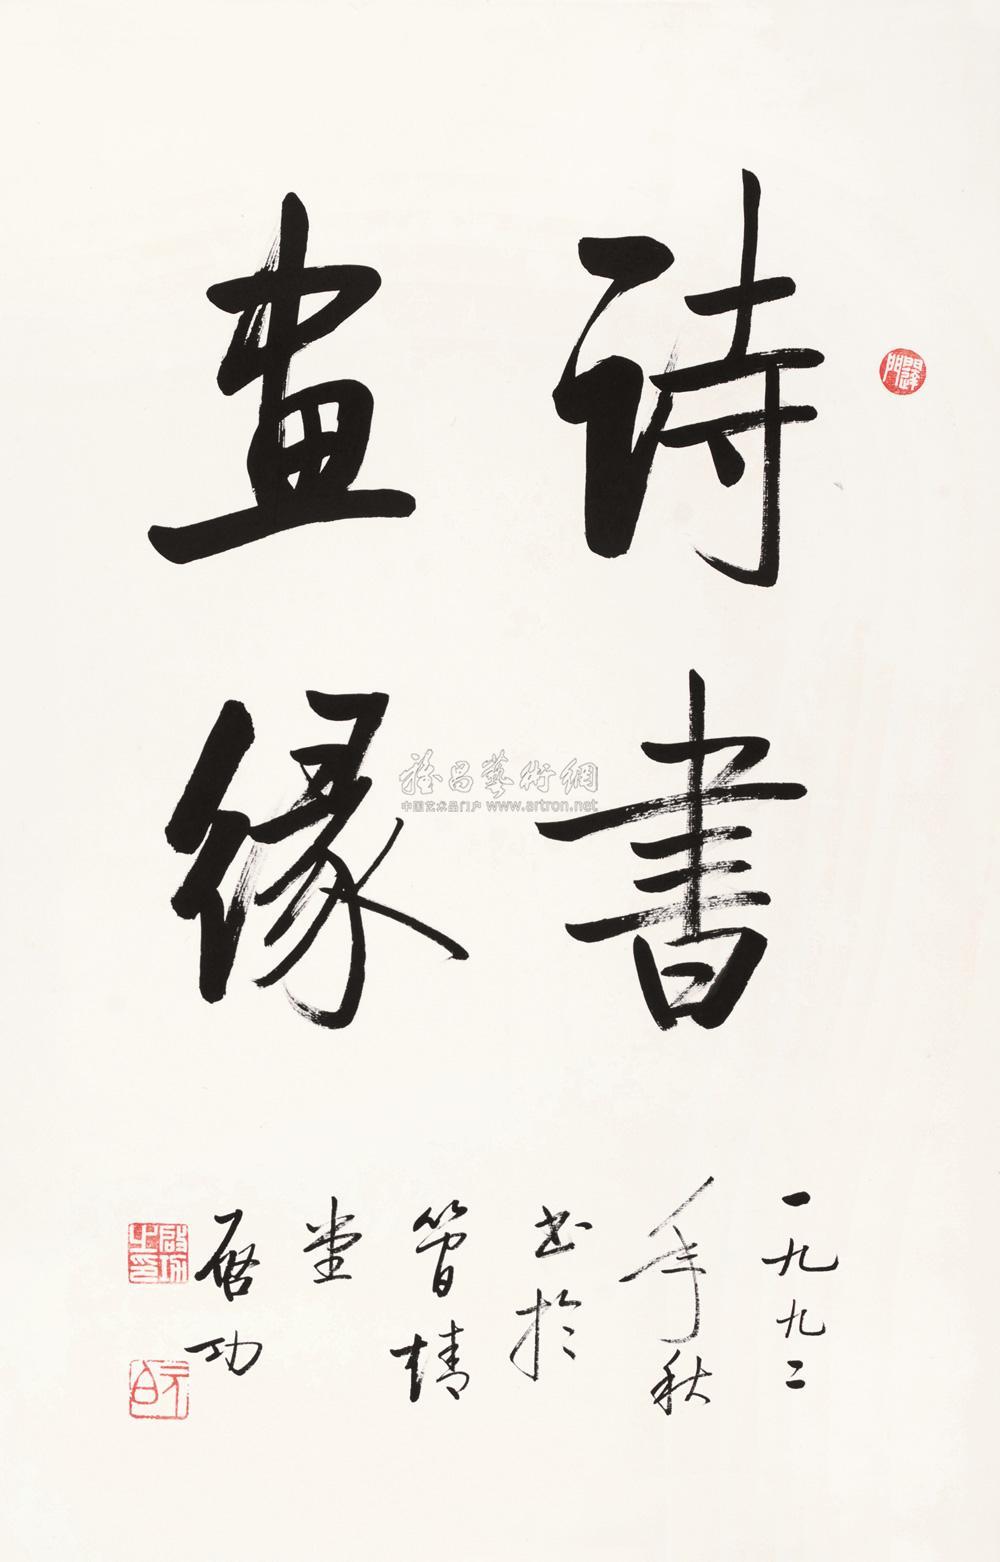 詩書
画緣
一九九二
年秋
书於
啓功
啟功之印
雅昌藝術網
中国艺术品门户 www.artron.net